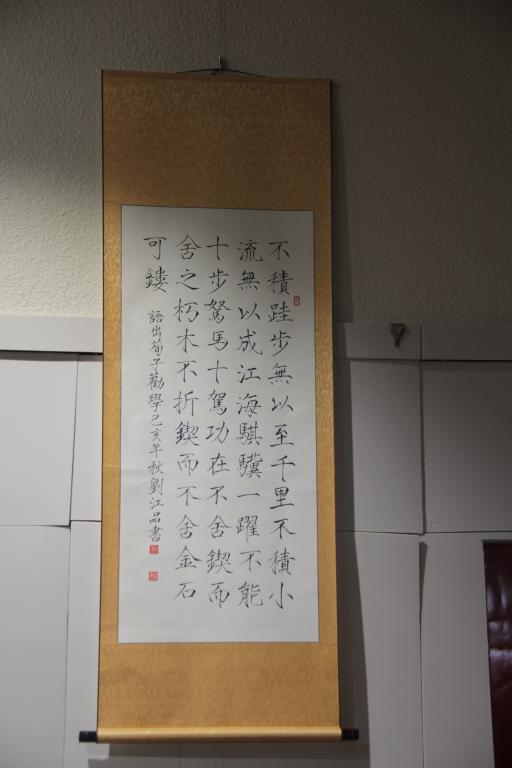 不積跬步無以至千里不積小
流無以成江海騏驥一躍不能
十步駑馬十駕功在不舍鍥而
舍之朽木不折鍥而不舍金石
可鏤
語出荀子勸學己亥年秋劉江品書